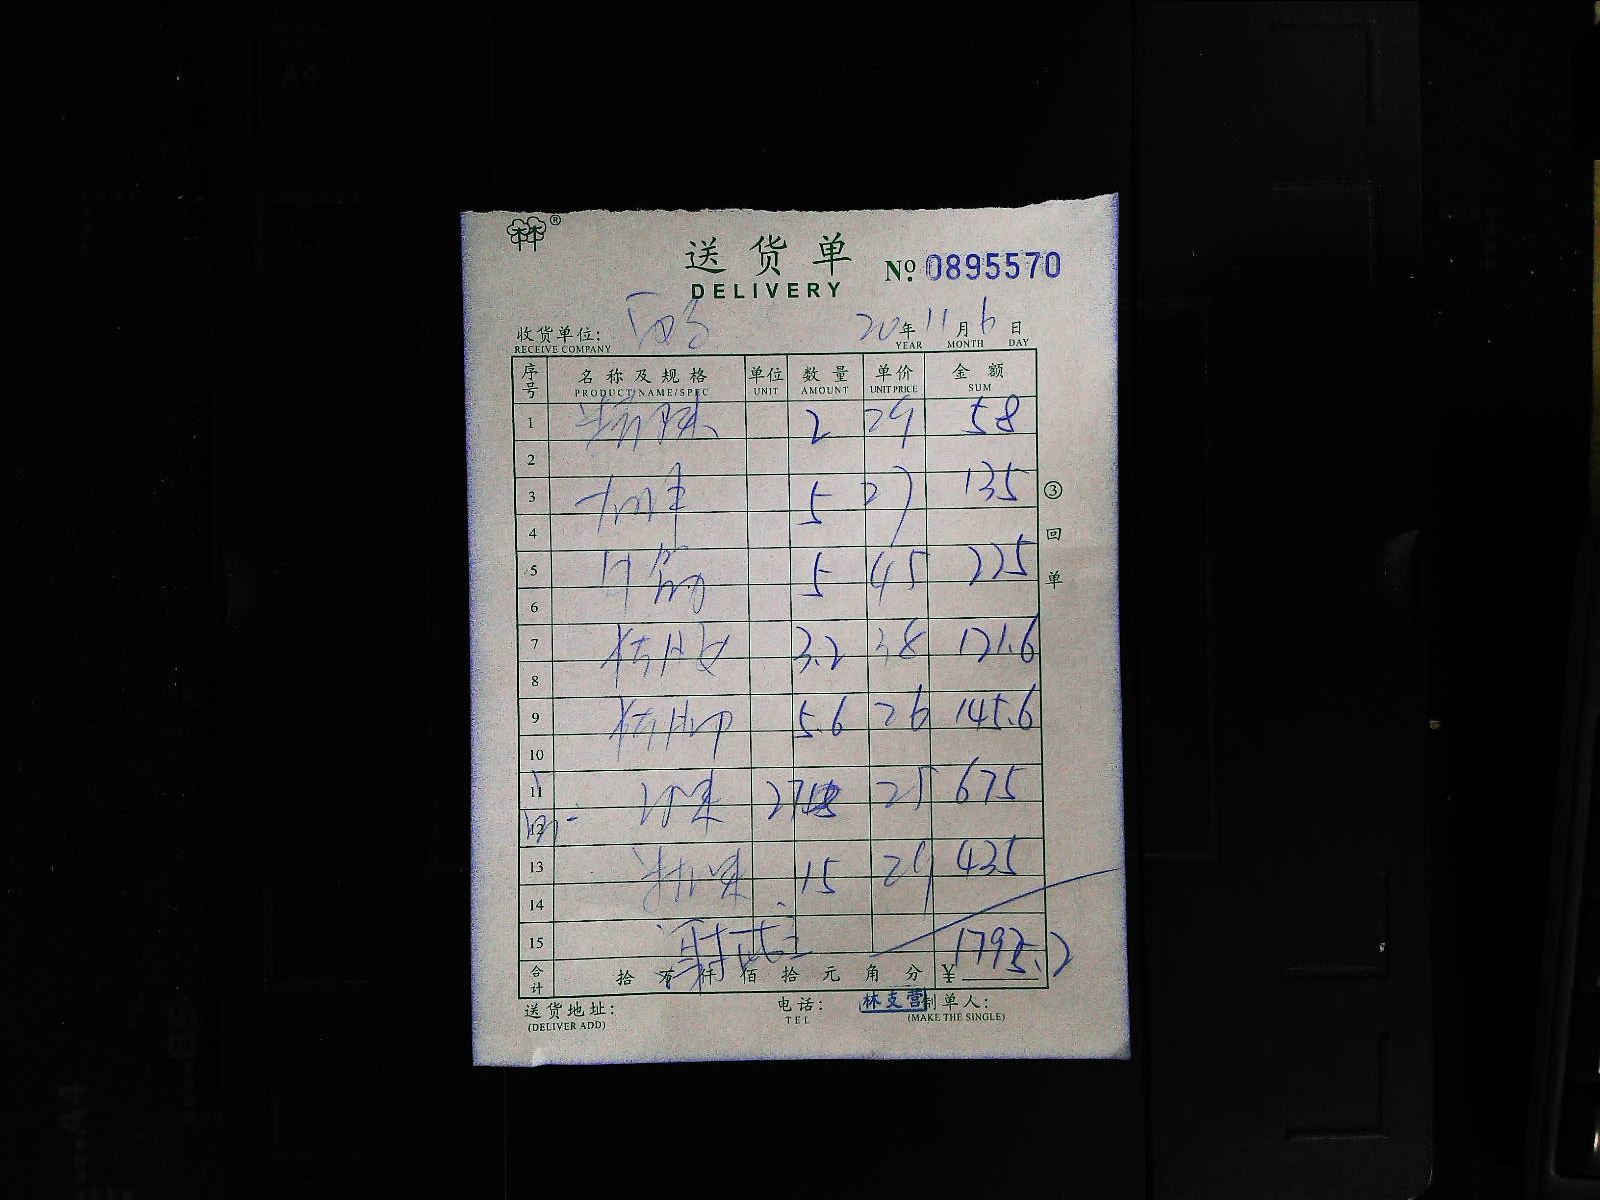 林®
送货单
DELIVERY
№ 0895570
收货单位:
RECEIVE COMPANY
20年11月6日
YEAR MONTH DAY
序号 名称及规格 单位 数量 单价 金额
PRODUCT NAME/SPEC UNIT AMOUNT UNIT PRICE SUM
1 2 29 58
2
3 5 27 135
4
5 牛筋 5 45 225
6
7 3.2 38 121.6
8
9 5.6 26 145.6
10
11 27 25 675
12
13 15 29 435
14
15
合计 拾 万 仟 佰 拾 元 角 分 ¥1795.2
③回单
送货地址: 电话: 林支营 制单人:
(DELIVER ADD) TEL (MAKE THE SINGLE)